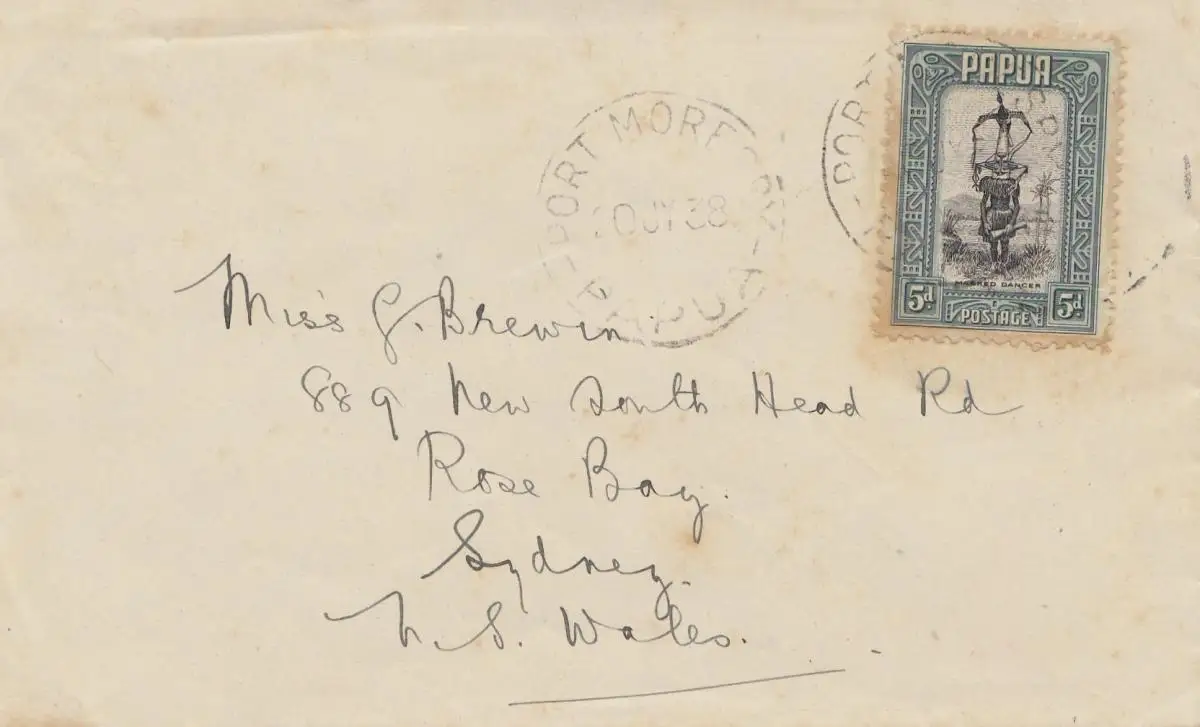 PAPUA
MASKED DANCER
5d POSTAGE 5d
PORT MORESBY
JY 38
PAPUA
PORT
Miss G. Brewin.
889 New South Head Rd
Rose Bay.
Sydney.
N. S. Wales.